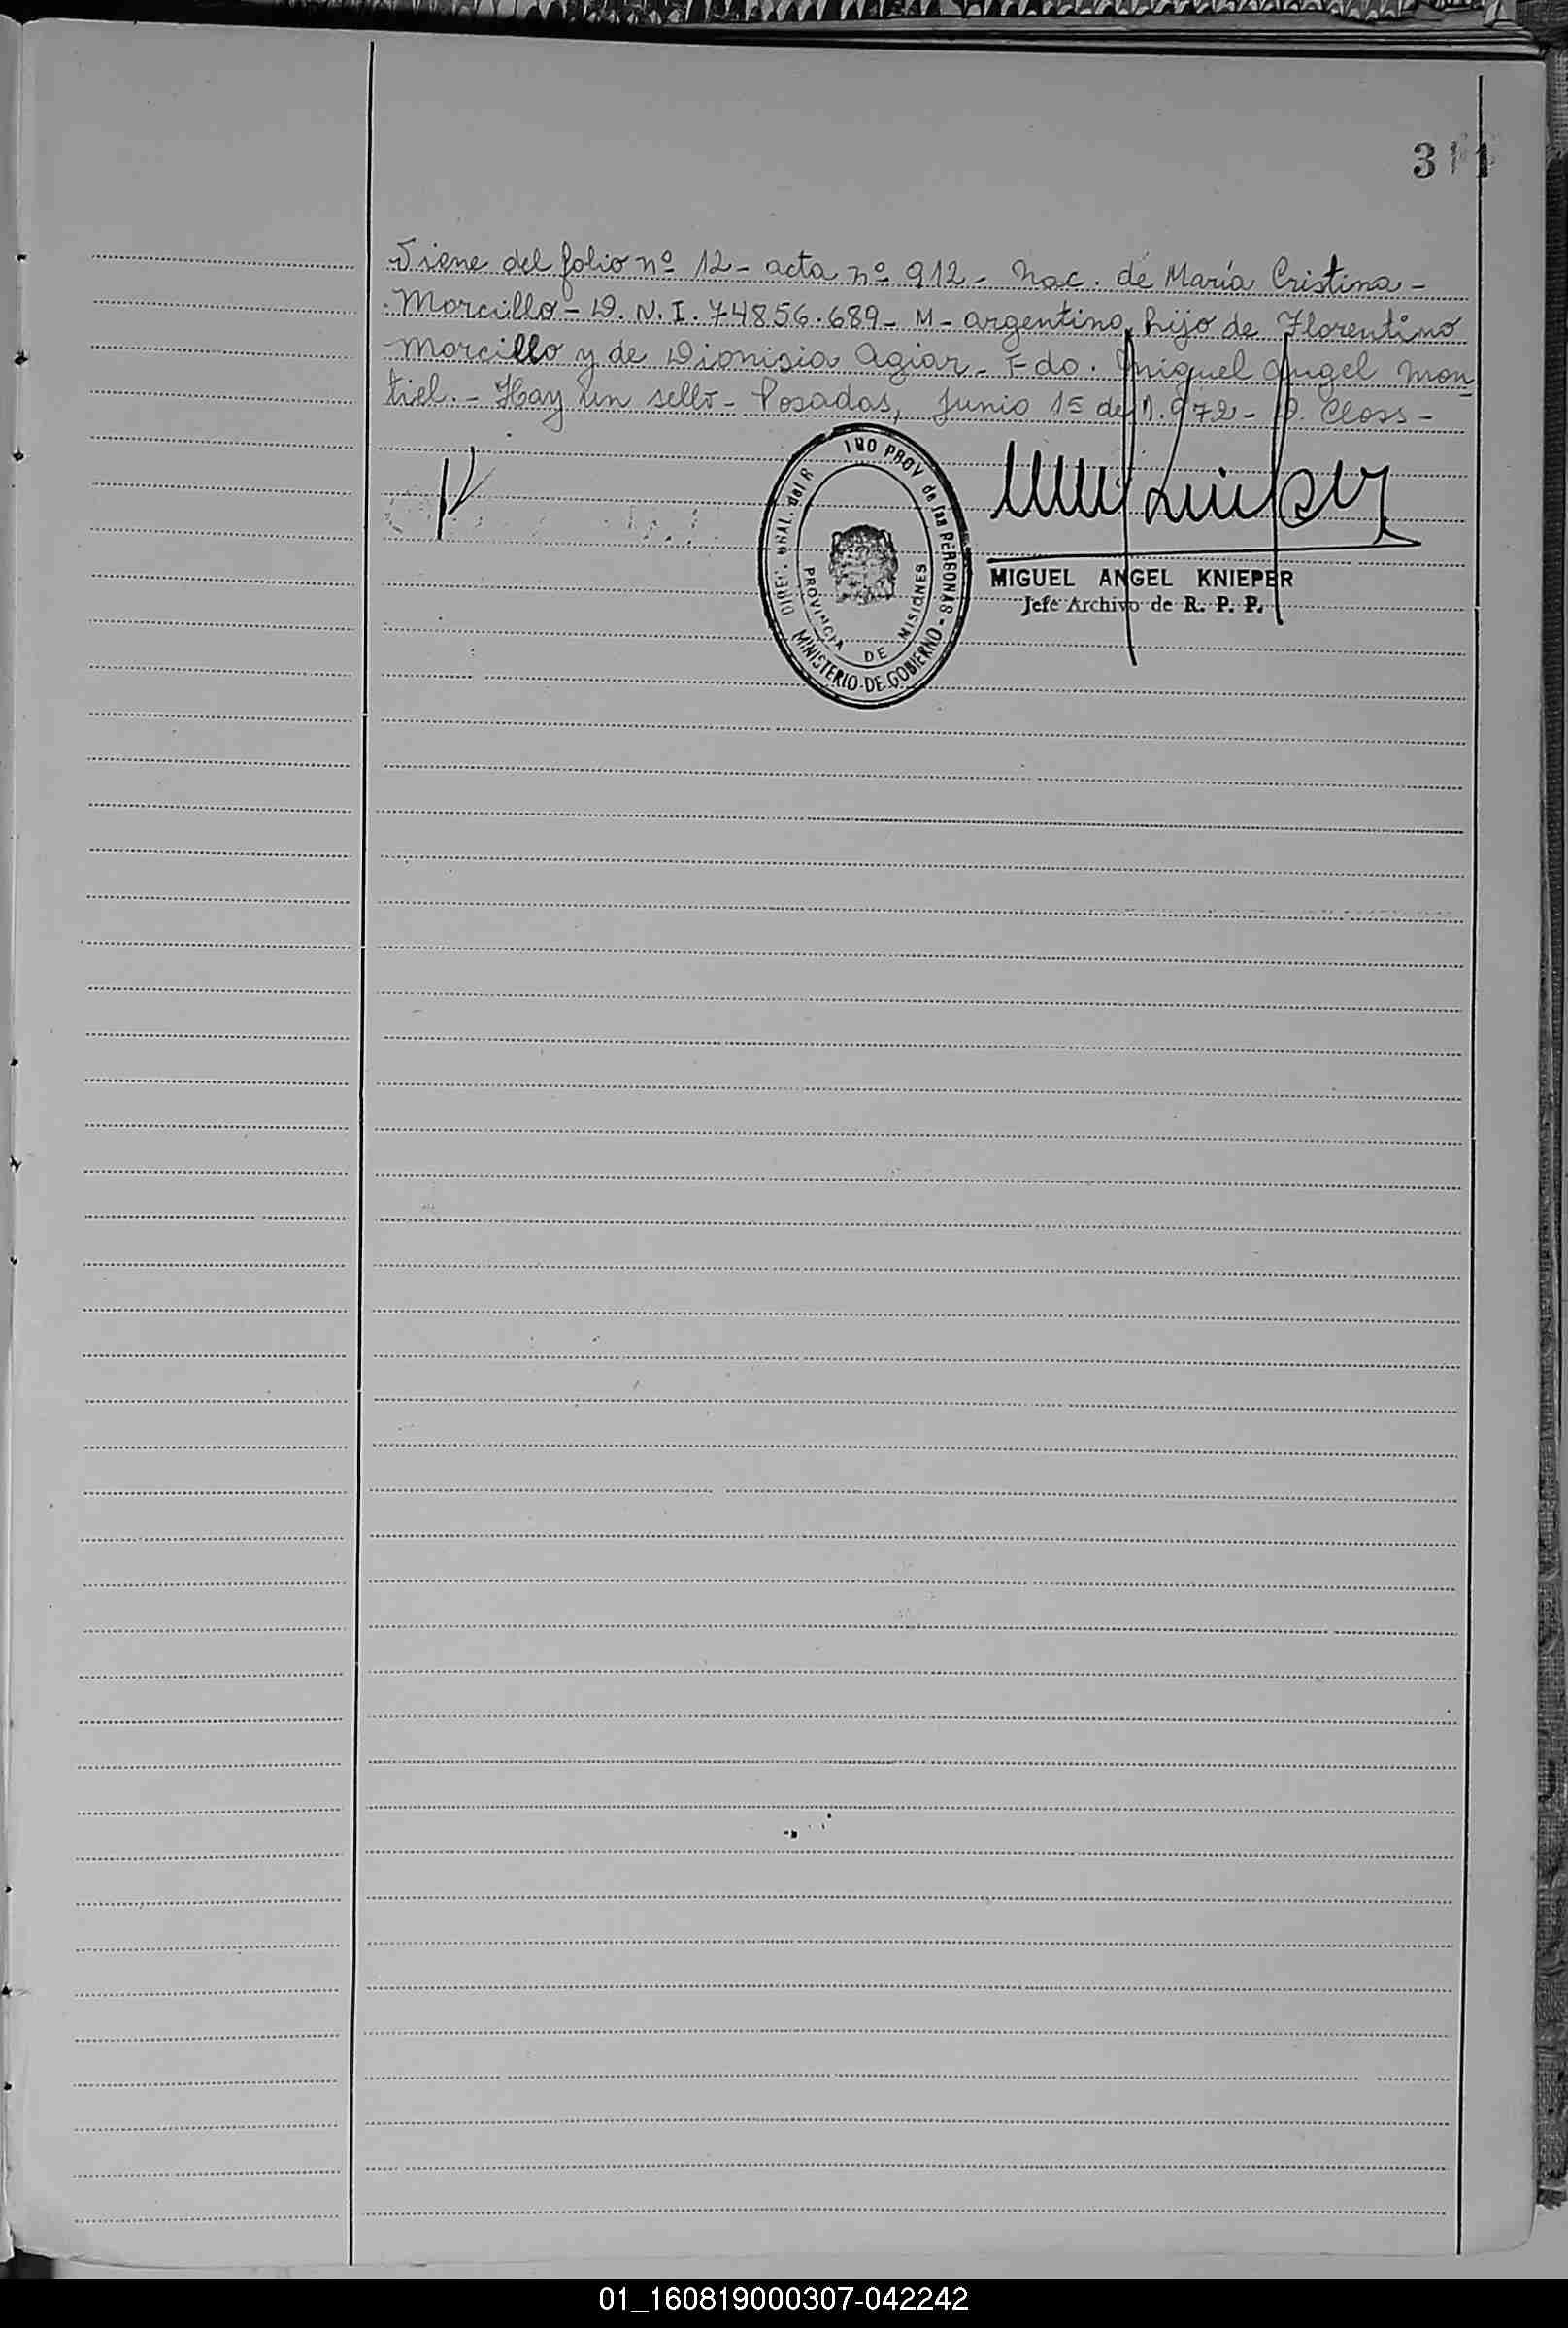 311
Viene del folio nº 12 - acta nº 912 - Nac. de María Cristina -
Morcillo - D. N. I. 74856.689 - M - argentino, hijo de Florentino
Morcillo y de Dionisia Agiar - Fdo. Miguel Angel Mon
tiel. - Hay un sello - Posadas, Junio 15 de 1.972 - Closs -
DIREC. GRAL. del R PROV de las PERSONAS - MINISTERIO DE GOBIERNO
PROVINCIA DE MISIONES
MIGUEL ANGEL KNIEPER
Jefe Archivo de R. P. P.
01_160819000307-042242